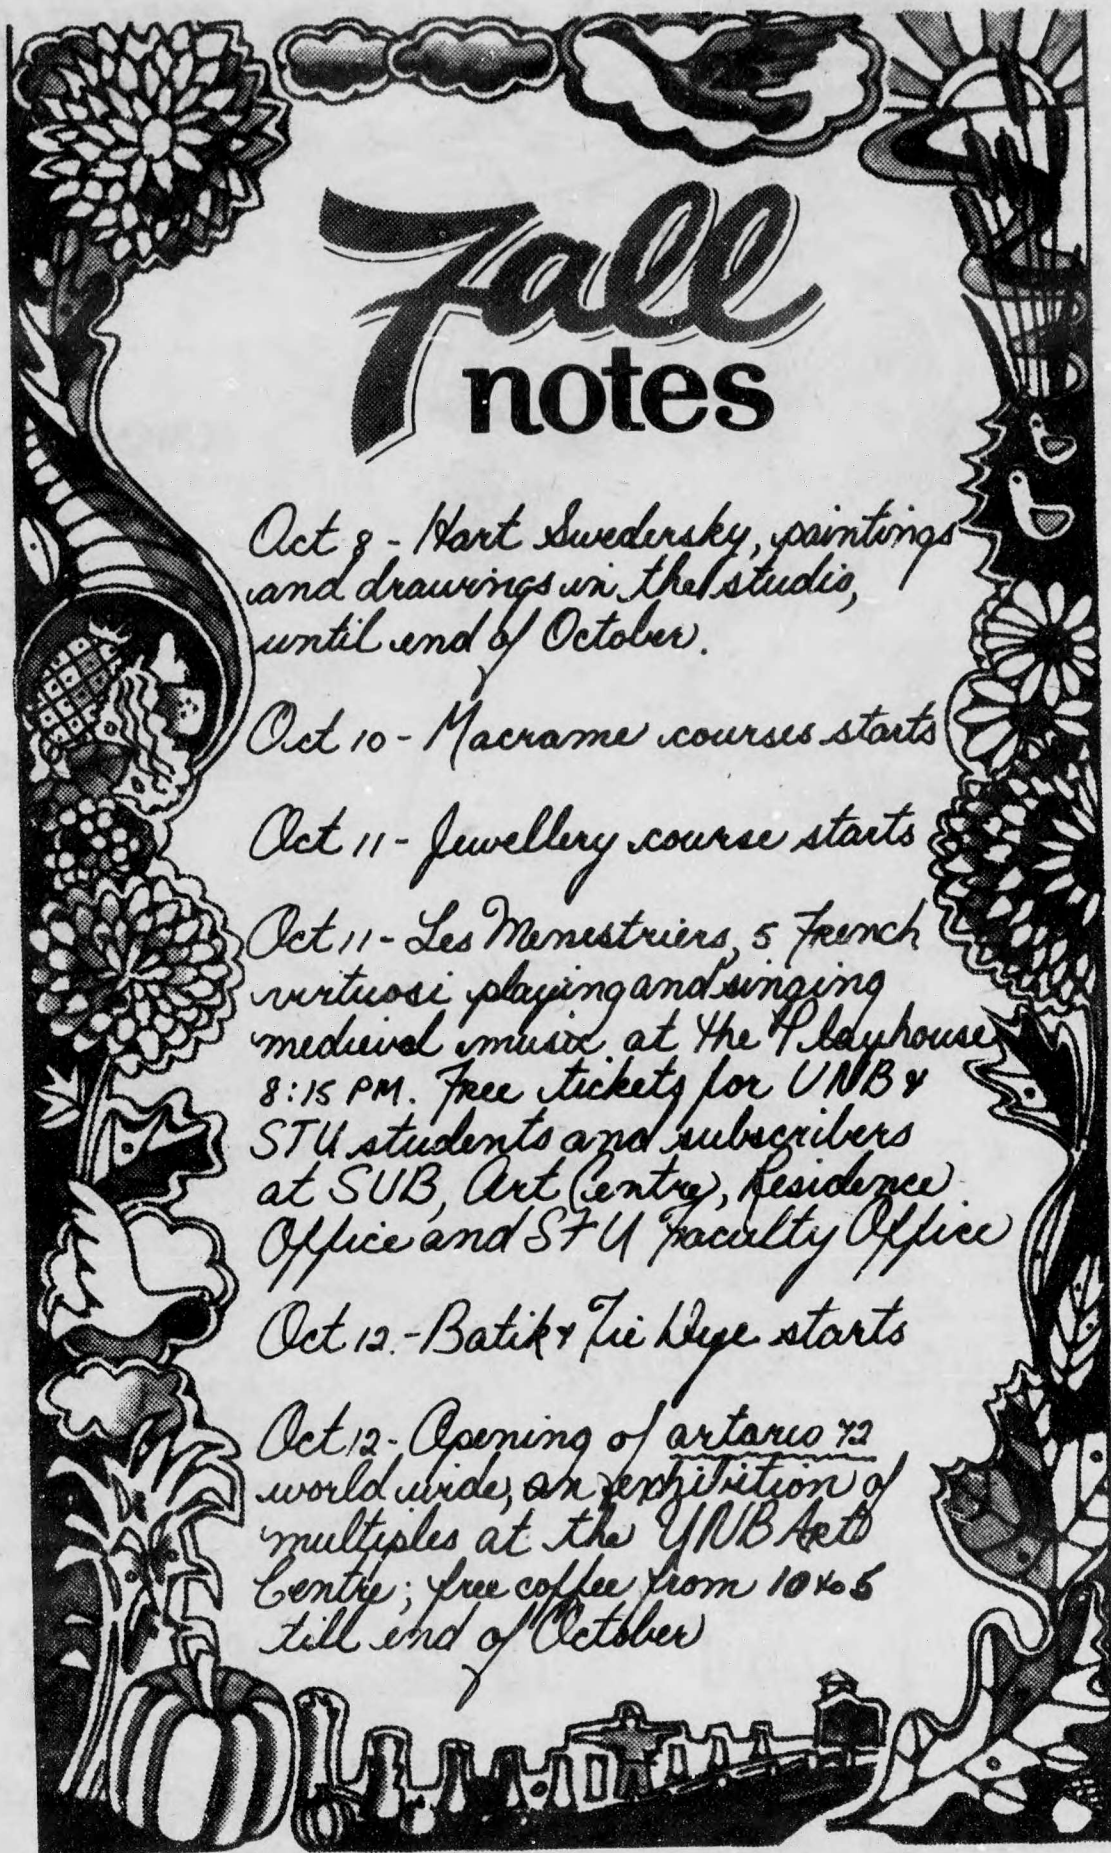 Fall
notes
Oct 8 - Hart Swedersky, paintings
and drawings in the studio,
until end of October.
Oct 10 - Macrame courses starts
Oct 11 - Jewellery course starts
Oct 11 - Les Menestriers, 5 French
virtuosi playing and singing
medieval music at the Playhouse
8:15 PM. Free tickets for UNB &
STU students and subscribers
at SUB, Art Centre, Residence
Office and STU Faculty Office
Oct 12. - Batik & Tie Dye starts
Oct 12 - Opening of artario 72
world wide, an exhibition of
multiples at the UNB Arts
Centre; free coffee from 10 to 5
till end of October